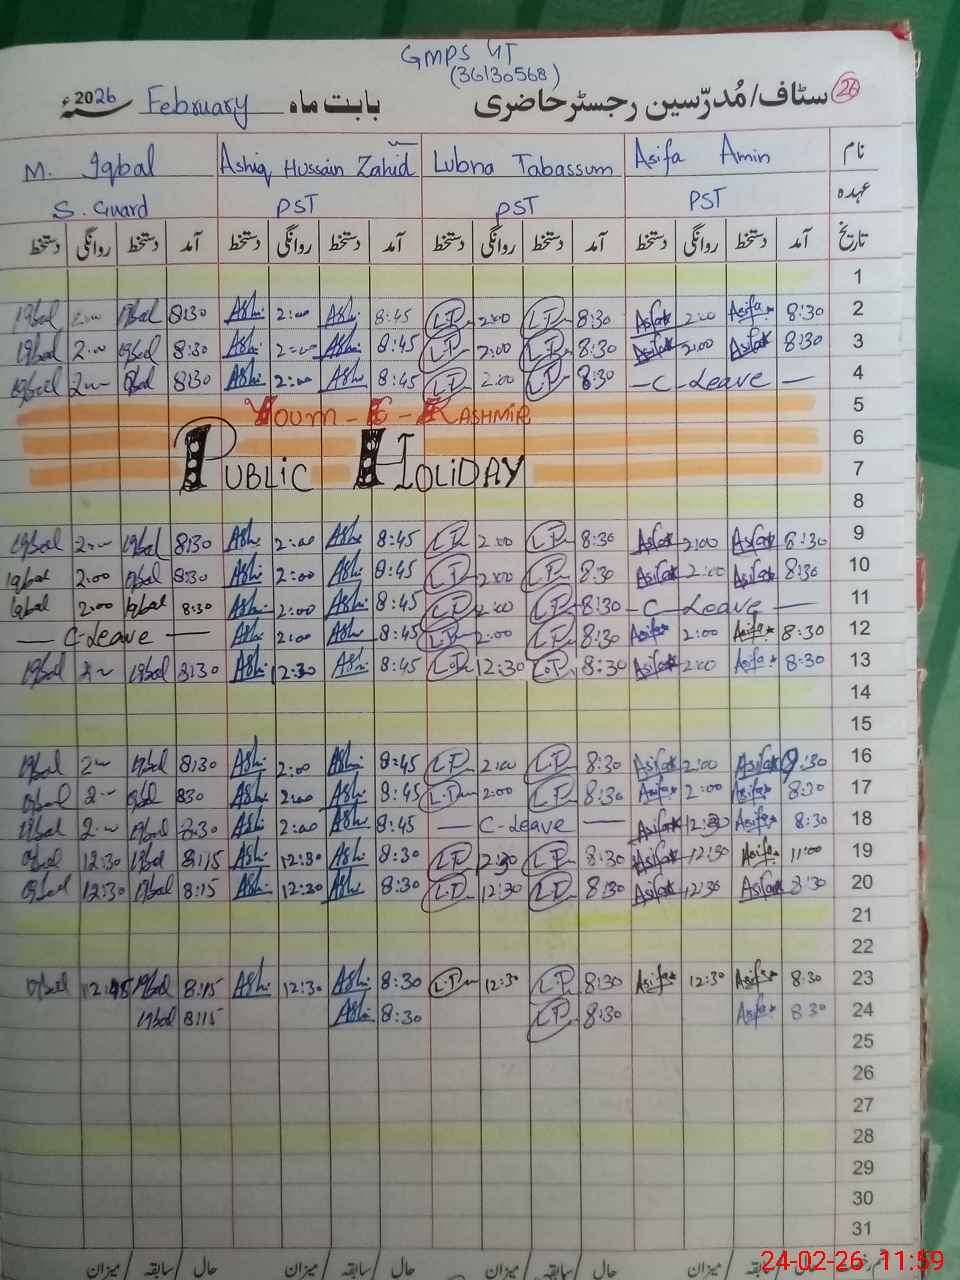 GMPS 4T
(36130568)
26 سٹاف/مُدرّسین رجسٹر حاضری بابت ماہ February سنہ 2026ء
نام Asifa Amin Lubna Tabassum Ashiq Hussain Zahid M. Iqbal
عہدہ PST PST PST S. Guard
تاریخ آمد دستخط روانگی دستخط آمد دستخط روانگی دستخط آمد دستخط روانگی دستخط آمد دستخط روانگی دستخط
1
2 8:30 Asifa 2:00 Asifa 8:30 L.P 2:00 L.P 8:45 Ashi 2:00 Ashi 8:30 Iqbal Iqbal
3 8:30 Asifa 2:00 Asifa 8:30 L.P 2:00 L.P 8:45 Ashi 2:00 Ashi 8:30 Iqbal 2:00 Iqbal
4 — C-Leave — 8:30 L.P 2:00 L.P 8:45 Ashi 2:00 Ashi 8:30 Iqbal 2:00 Iqbal
5 Youm-E-Kashmir
6
7 Public Holiday
8
9 8:30 Asifa 2:00 Asifa 8:30 L.P 2:00 L.P 8:45 Ashi 2:00 Ashi 8:30 Iqbal 2:00 Iqbal
10 8:30 Asifa 2:00 Asifa 8:30 L.P 2:00 L.P 8:45 Ashi 2:00 Ashi 8:30 Iqbal 2:00 Iqbal
11 — C-Leave — 8:30 L.P 2:00 L.P 8:45 Ashi 2:00 Ashi 8:30 Iqbal 2:00 Iqbal
12 8:30 Asifa 2:00 Asifa 8:30 L.P 2:00 L.P 8:45 Ashi 2:00 Ashi — C-Leave —
13 8:30 Asifa 2:00 Asifa 8:30 L.P 12:30 L.P 8:45 Ashi 12:30 Ashi 8:30 Iqbal Iqbal
14
15
16 :30 Asifa 2:00 Asifa 8:30 L.P 2:00 L.P 8:45 Ashi 2:00 Ashi 8:30 Iqbal 2:00 Iqbal
17 8:30 Asifa 2:00 Asifa 8:30 L.P 2:00 L.P 8:45 Ashi 2:00 Ashi 830 Iqbal 2:00 Iqbal
18 8:30 Asifa 12:30 Asifa — C-Leave — 8:45 Ashi 2:00 Ashi 8:30 Iqbal 2:00 Iqbal
19 11:00 Asifa 12:30 Asifa 8:30 L.P 12:30 L.P 8:30 Ashi 12:30 Ashi 8:15 Iqbal 12:30 Iqbal
20 8:30 Asifa 12:30 Asifa 8:30 L.P 12:30 L.P 8:30 Ashi 12:30 Ashi 8:15 Iqbal 12:30 Iqbal
21
22
23 8:30 Asifa 12:30 Asifa 8:30 L.P 12:30 L.P 8:30 Ashi 12:30 Ashi 8:15 Iqbal 12:45 Iqbal
24 8:30 Asifa 8:30 L.P 8:30 Ashi 8:15 Iqbal
25
26
27
28
29
30
31
حال / سابقہ / میزان حال / سابقہ / میزان حال / سابقہ / میزان
24-02-26 11:59